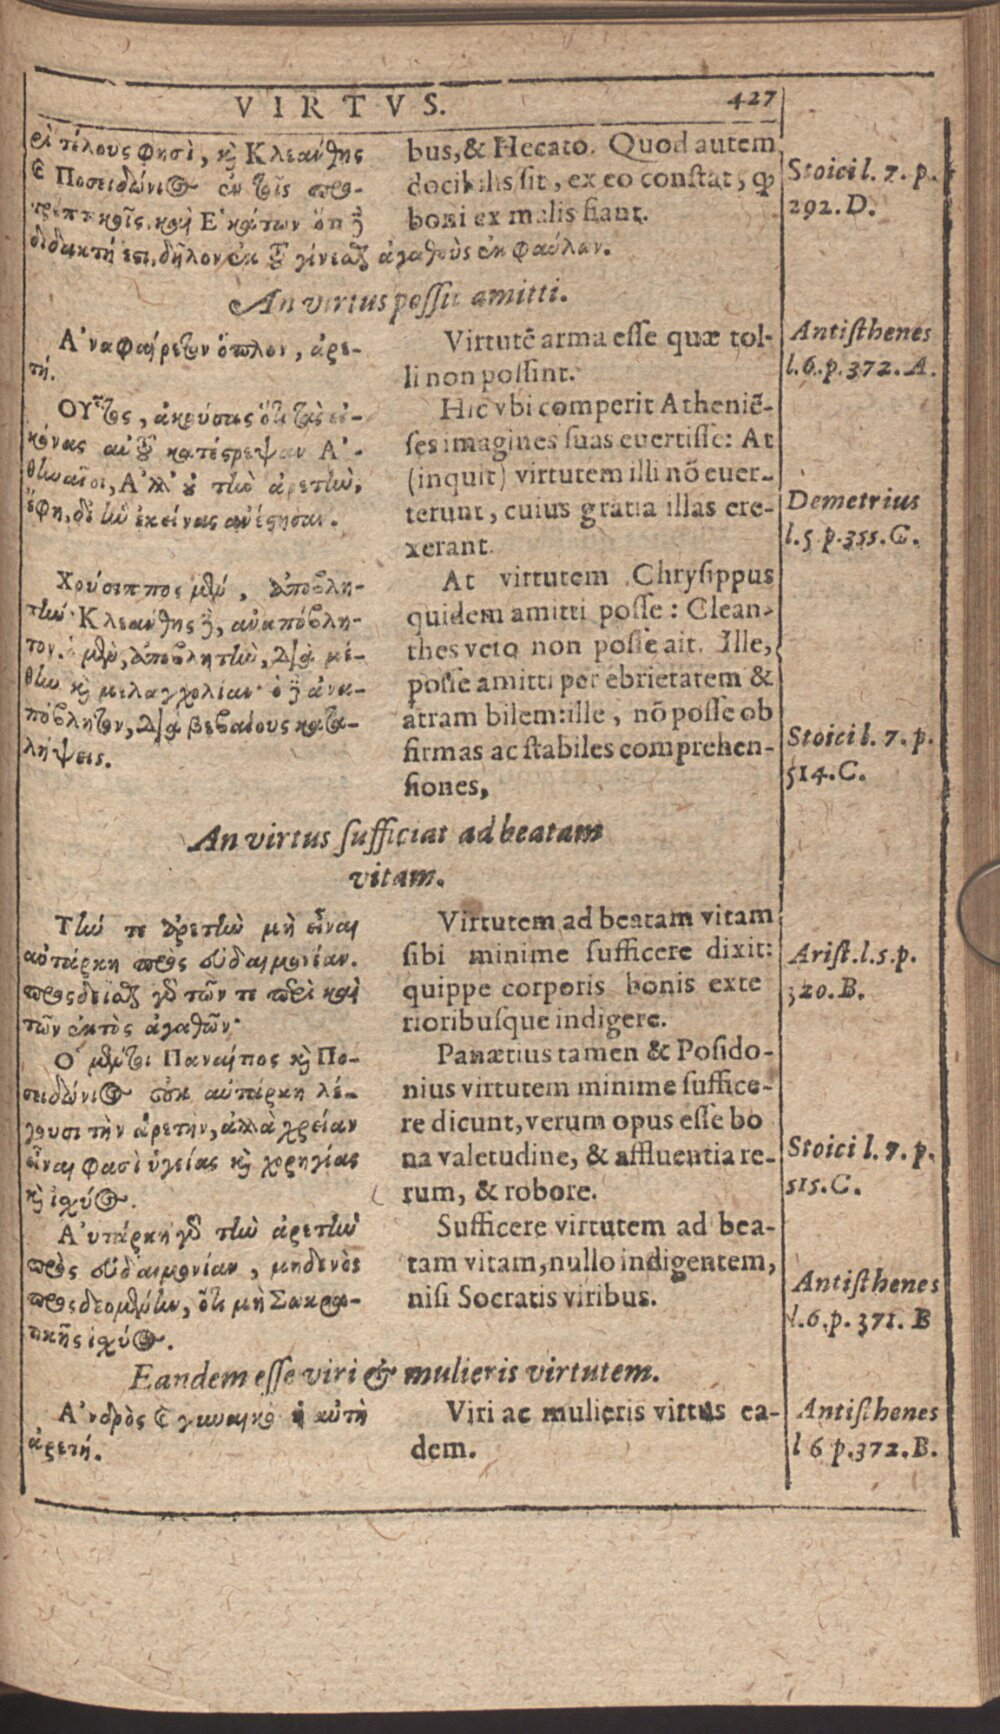 VIRTVS. 427
ρὶ τέλους φησὶ, καὶ Κλεάνθης
καὶ Ποσειδώνιος ἐν τοῖς προ-
τρεπτικοῖς, καὶ Ἑκάτων ὅτι δὲ
διδακτή ἐστι, δῆλον ἐκ τοῦ γίνεσθαι ἀγαθοὺς ἐκ φαύλων.
bus, & Hecato. Quod autem
docibilis sit, ex eo constat, ꝙ
boni ex malis fiant.
Stoici l. 7. p.
292. D.
An virtus possit amitti.
Ἀναφαίρετον ὅπλον, ἀρε-
τή.
Virtutẽ arma esse quæ tol-
li non possint.
Antisthenes
l. 6. p. 372. A.
Οὗτος, ἀκούσας ὅτι τὰς εἰ-
κόνας αὐτοῦ κατέστρεψαν Ἀ-
θηναῖοι, Ἀλλ' οὐ τὴν ἀρετὴν,
ἔφη, δι' ἣν ἐκείνας ἀνέστησαν.
Hic vbi comperit Atheniẽ-
ses imagines suas euertisse: At
(inquit) virtutem illi nõ euer-
terunt, cuius gratia illas ere-
xerant.
Demetrius
l. 5 p. 355. C.
Χρύσιππος μὲν, ἀποβλη-
τήν· Κλεάνθης δὲ, ἀναπόβλη-
τον. ὁ μὲν, ἀποβλητὴν, διὰ μέ-
θην καὶ μελαγχολίαν· ὁ δὲ ἀνα-
πόβλητον, διὰ βεβαίους κατα-
λήψεις.
At virtutem Chrysippus
quidem amitti posse: Clean-
thes veto non posse ait. Ille,
posse amitti per ebrietatem &
atram bilem: ille, nõ posse ob
firmas ac stabiles comprehen-
siones,
Stoici l. 7. p.
514. C.
An virtus sufficiat ad beatam
vitam.
Τήν τε ἀρετὴν μὴ εἶναι
αὐτάρκη πρὸς εὐδαιμονίαν.
προςδεῖσθαι γὰρ τῶν τε περὶ καὶ
τῶν ἐκτὸς ἀγαθῶν·
Virtutem ad beatam vitam
sibi minime sufficere dixit:
quippe corporis bonis exte
rioribusque indigere.
Arist. l. 5. p.
320. B.
Ὁ μέντοι Παναίτιος καὶ Πο-
σειδώνιος οὐκ αὐτάρκη λέ-
γουσι τὴν ἀρετὴν, ἀλλὰ χρείαν
εἶναι φασὶ ὑγείας καὶ χορηγίας
καὶ ἰσχύος.
Panætius tamen & Posido-
nius virtutem minime suffice-
re dicunt, verum opus esse bo
na valetudine, & affluentia re-
rum, & robore.
Stoici l. 7. p.
515. C.
Αὐτάρκη γὰρ τὴν ἀρετὴν
πρὸς εὐδαιμονίαν, μηδενὸς
προςδεομένην, ὅτι μὴ Σωκρα-
τικῆς ἰσχύος.
Sufficere virtutem ad bea-
tam vitam, nullo indigentem,
nisi Socratis viribus.
Antisthenes
l. 6. p. 371. B
Eandem esse viri & mulieris virtutem.
Ἀνδρὸς καὶ γυναικὸς ἡ αὐτὴ
ἀρετή.
Viri ac mulieris virtus ea-
dem.
Antisthenes
l 6 p. 372. B.